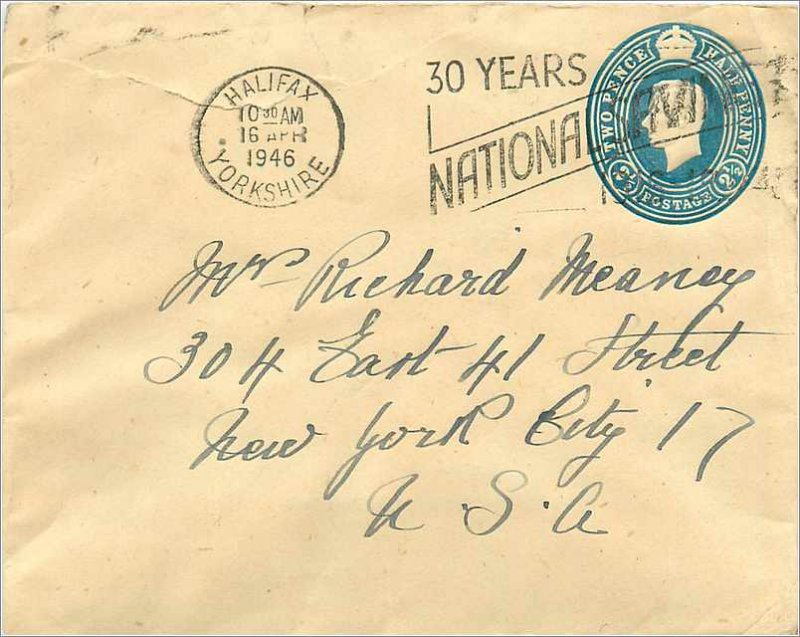 HALIFAX
10 30 AM
16 APR
1946
YORKSHIRE
30 YEARS
NATIONAL SAVING
TWO PENCE HALF PENNY
2½ POSTAGE 2½
Mrs Richard Meaney
304 East 41 Street
New York City 17
U.S.A